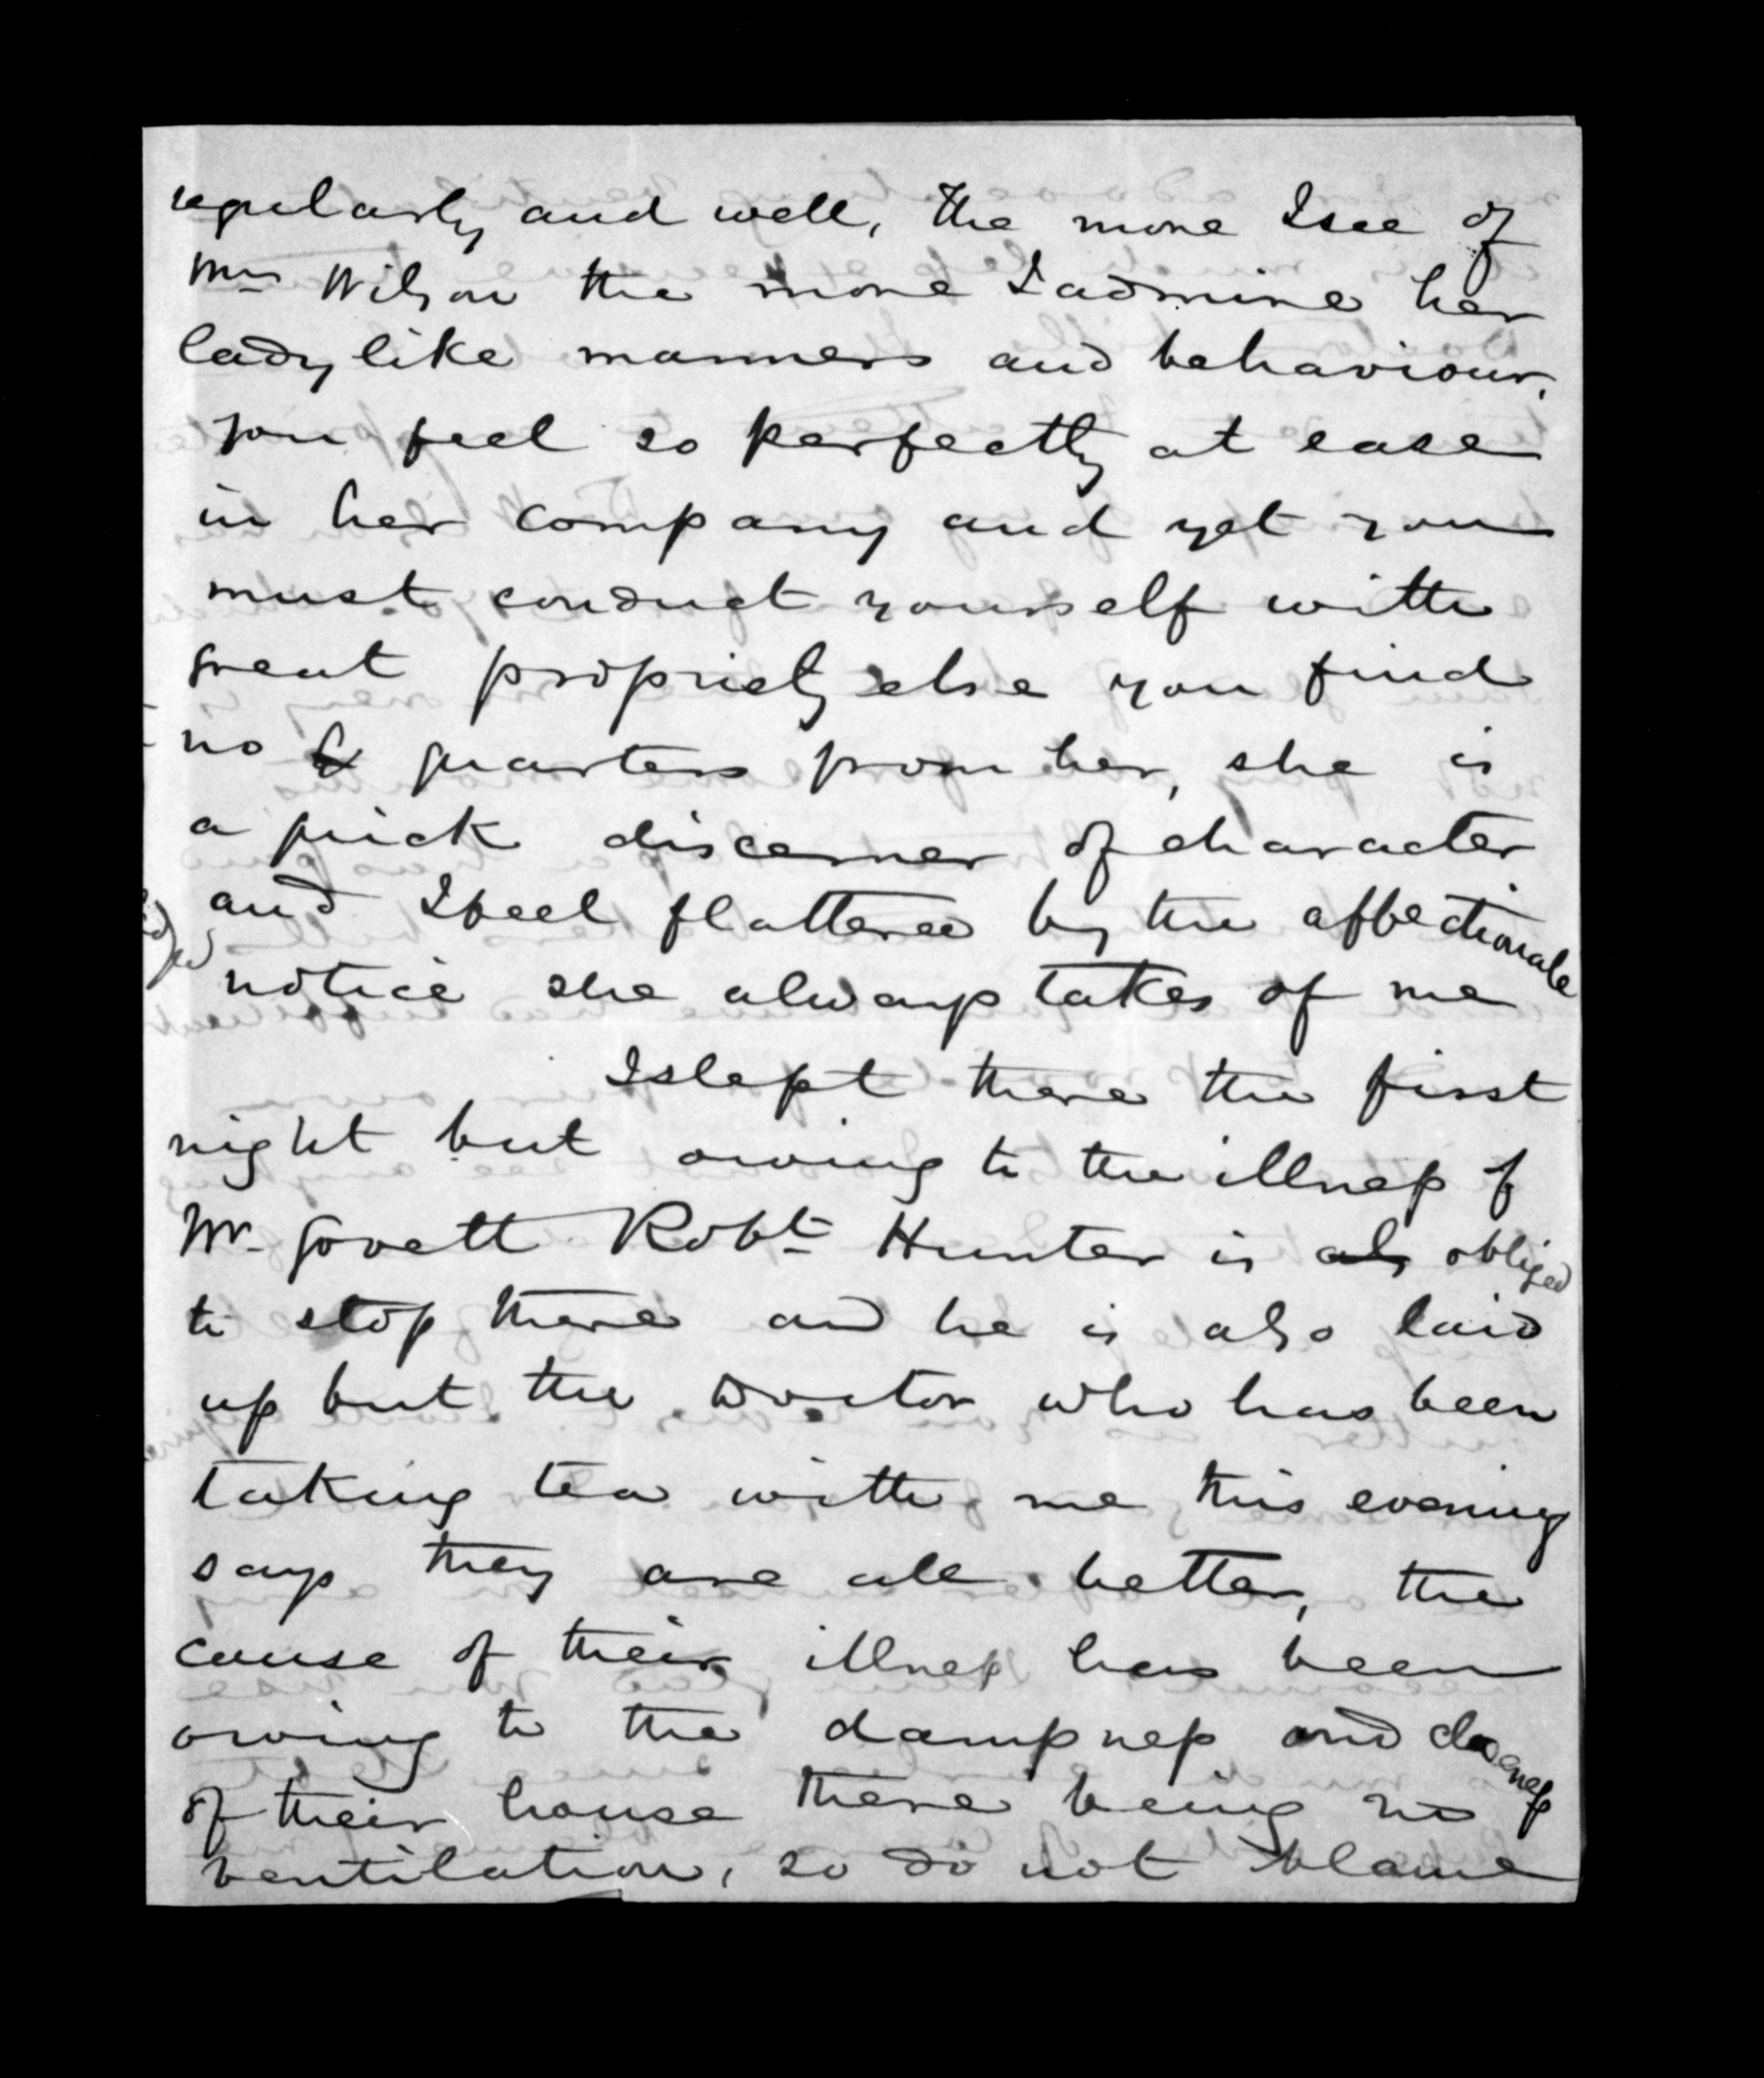 regularly and well, the more I see of
Mrs Wilson the more I admire her
ladylike manners and behaviour,
you feel so perfectly at ease
in her company and yet you
must conduct yourself with
great propriety else you find
no quarters from her, she is
a quick discerner of character
and I feel flattered by the affectionate
notice she always takes of me
I slept there the first
night but owing to the illness of
Mr Govett Robt Hunter is als obliged
to stop there and he is also laid
up but the Doctor who has been
taking tea with me this evening
says they are all better, the
cause of their illness has been
owing to the dampness and closeness
of their house there being no
ventilation, so do not blame